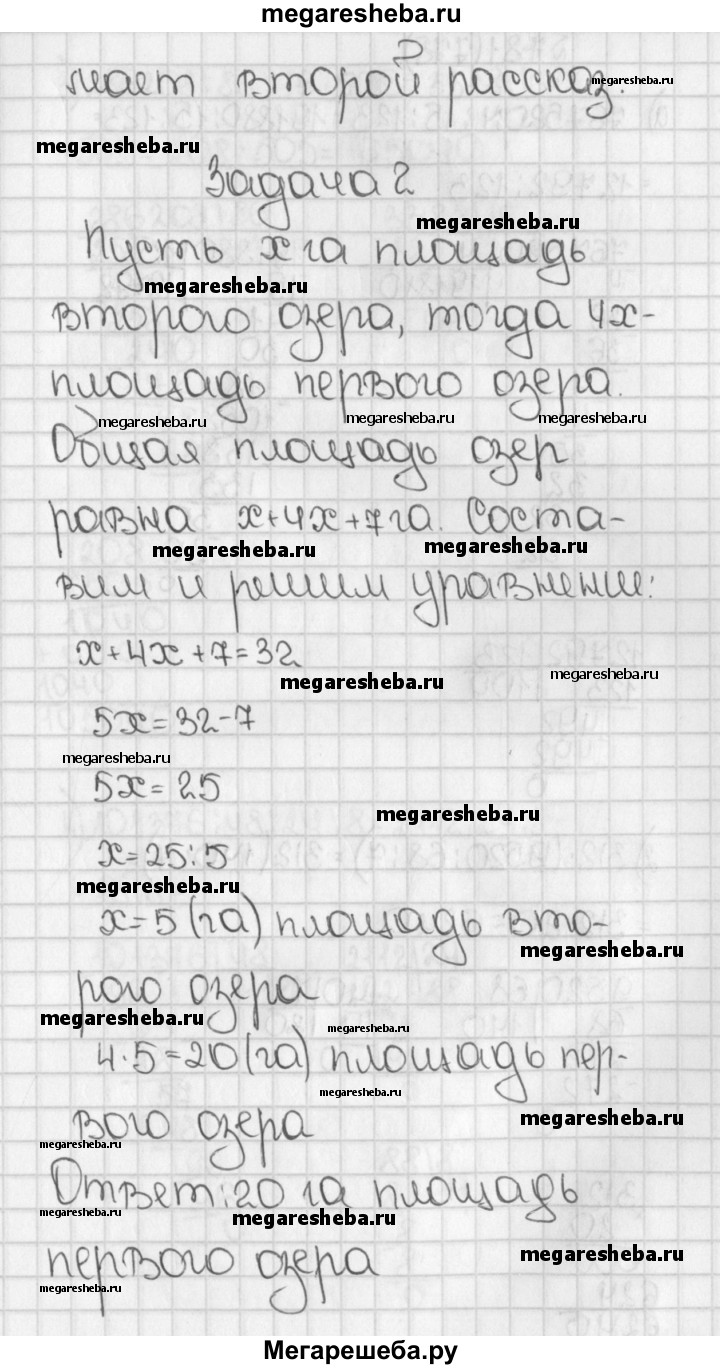 megaresheba.ru
мает второй рассказ.
megaresheba.ru
megaresheba.ru
Задача 2
megaresheba.ru
Пусть x га площадь
megaresheba.ru
второго озера, тогда 4x-
площадь первого озера.
megaresheba.ru megaresheba.ru megaresheba.ru
Общая площадь озер
равна x+4x+7 га. Соста-
megaresheba.ru megaresheba.ru
вим и решим уравнение:
x+4x+7=32
megaresheba.ru megaresheba.ru
5x=32-7
megaresheba.ru
5x=25
megaresheba.ru
x=25:5
megaresheba.ru
x=5 (га) площадь вто-
megaresheba.ru
рого озера
megaresheba.ru megaresheba.ru
4·5=20 (га) площадь пер-
megaresheba.ru
megaresheba.ru
вого озера
megaresheba.ru
Ответ: 20 га площадь
megaresheba.ru megaresheba.ru
первого озера
megaresheba.ru
megaresheba.ru
Мегарешеба.ру